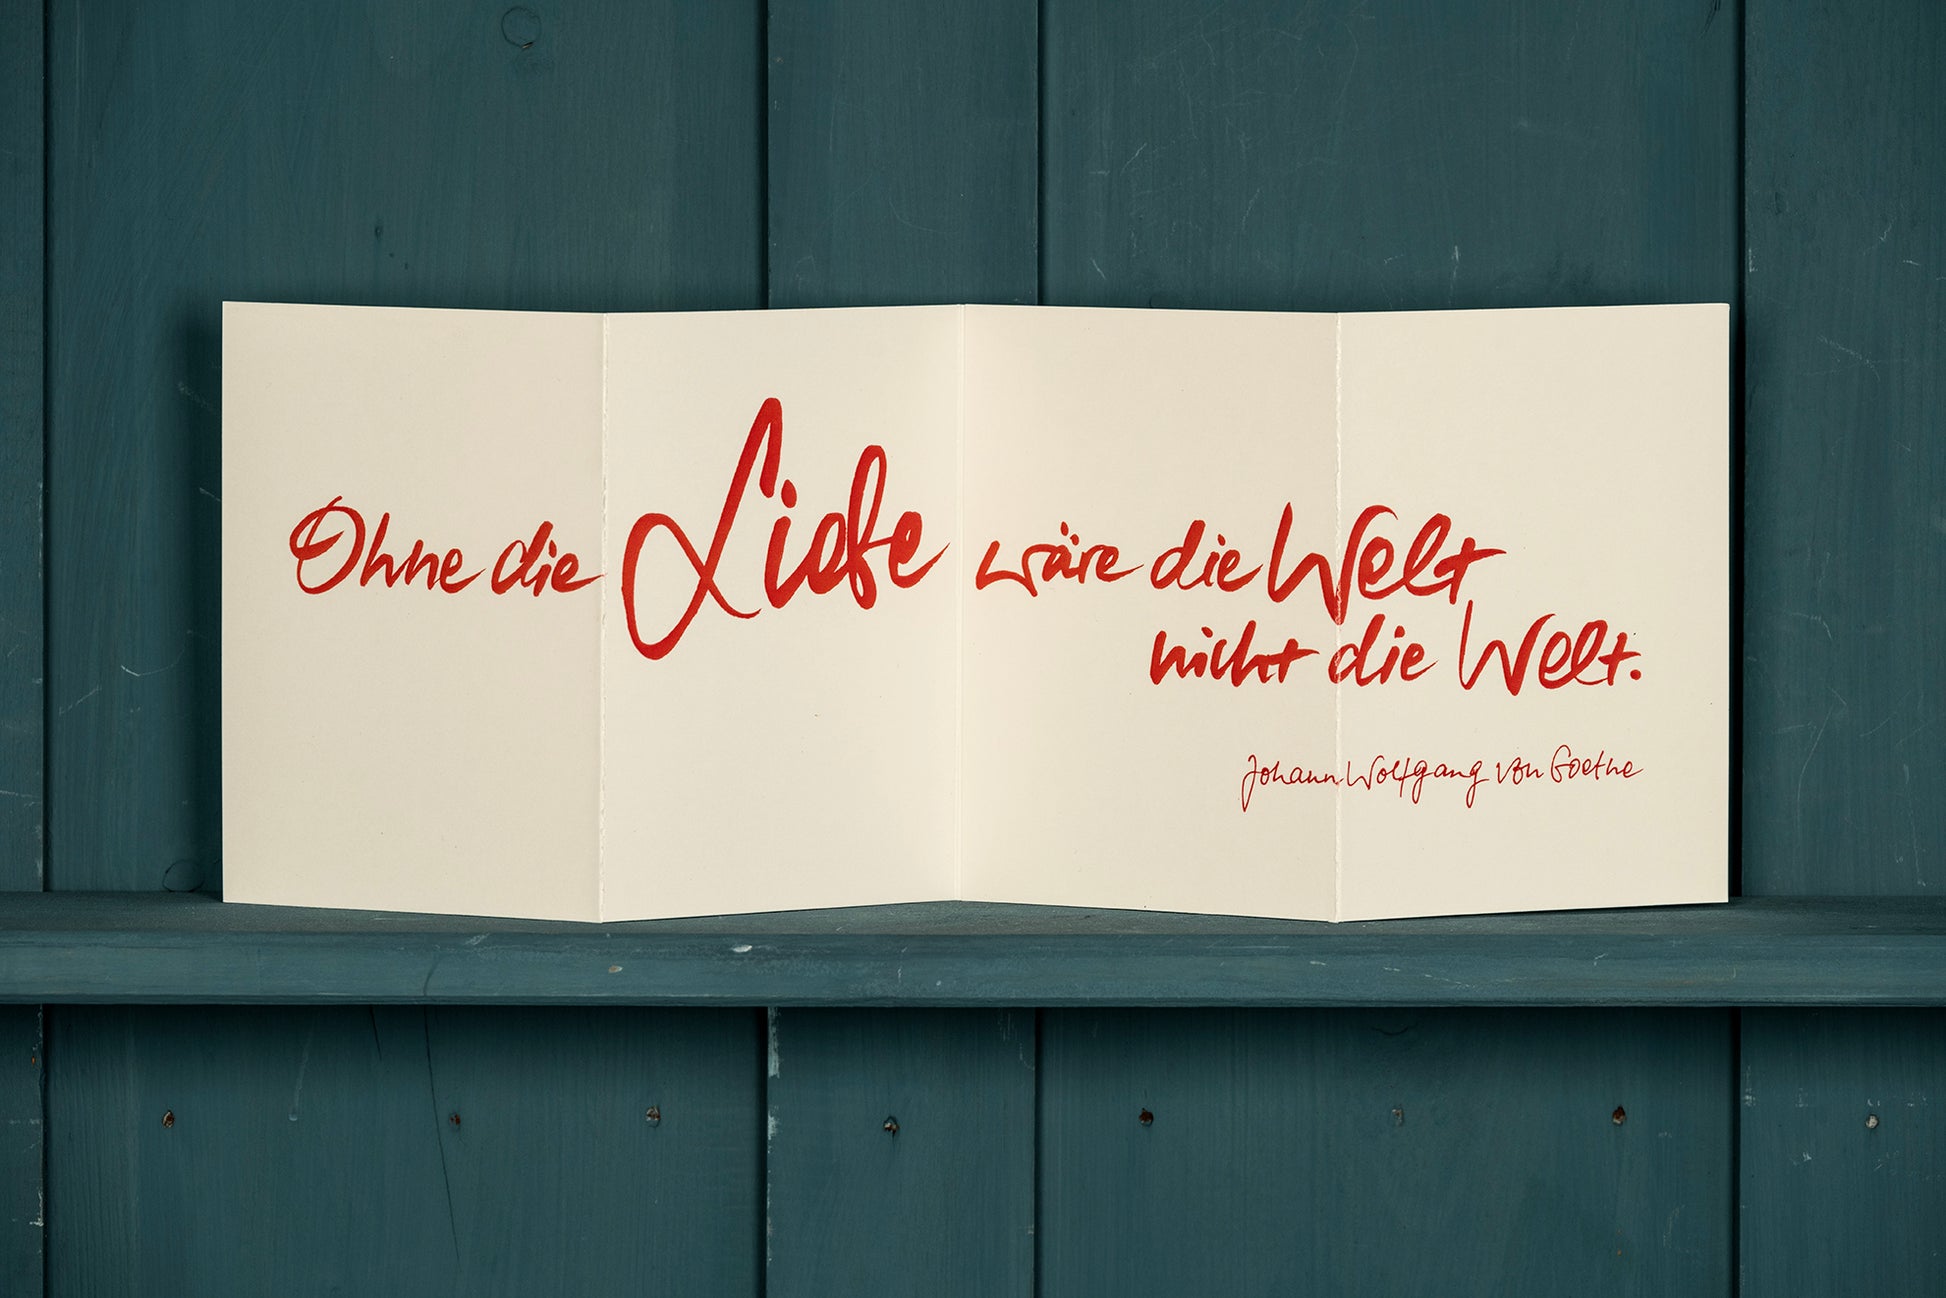 Ohne die Liebe wäre die Welt
nicht die Welt.
Johann Wolfgang von Goethe